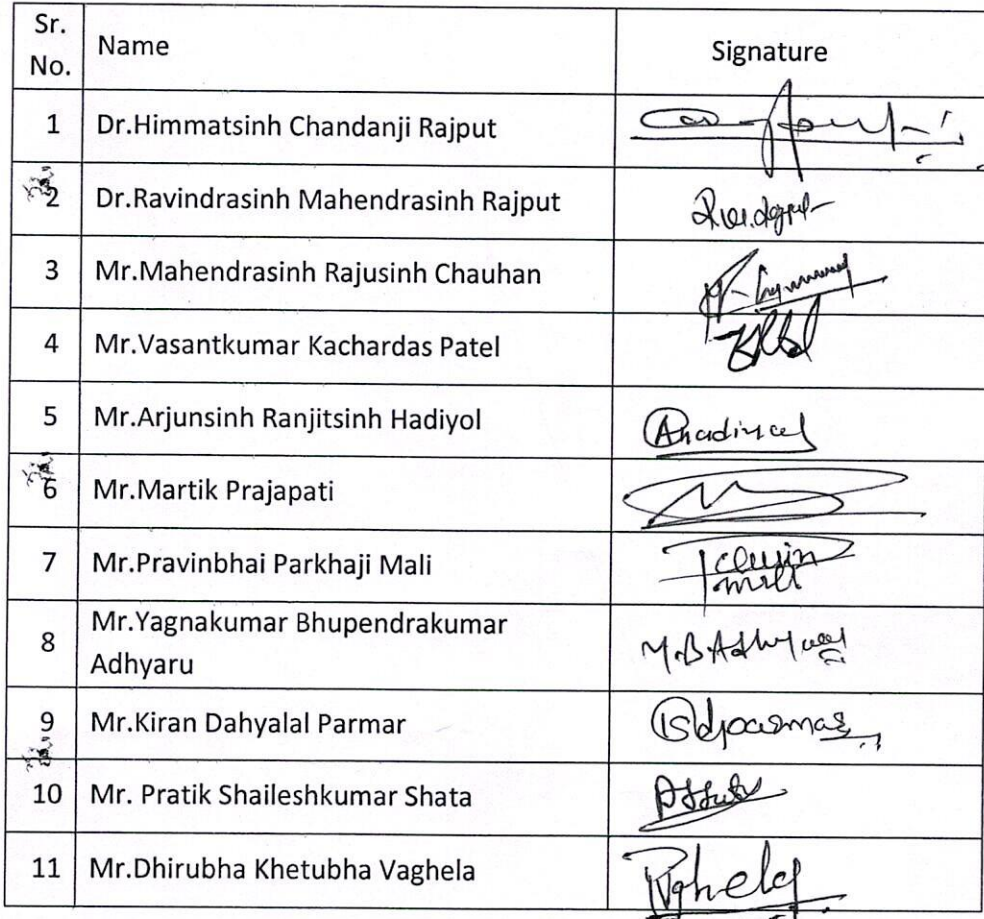 Sr. No. Name Signature
1 Dr.Himmatsinh Chandanji Rajput
2 Dr.Ravindrasinh Mahendrasinh Rajput
3 Mr.Mahendrasinh Rajusinh Chauhan
4 Mr.Vasantkumar Kachardas Patel
5 Mr.Arjunsinh Ranjitsinh Hadiyol
6 Mr.Martik Prajapati
7 Mr.Pravinbhai Parkhaji Mali
8 Mr.Yagnakumar Bhupendrakumar
Adhyaru
9 Mr.Kiran Dahyalal Parmar
10 Mr. Pratik Shaileshkumar Shata
11 Mr.Dhirubha Khetubha Vaghela